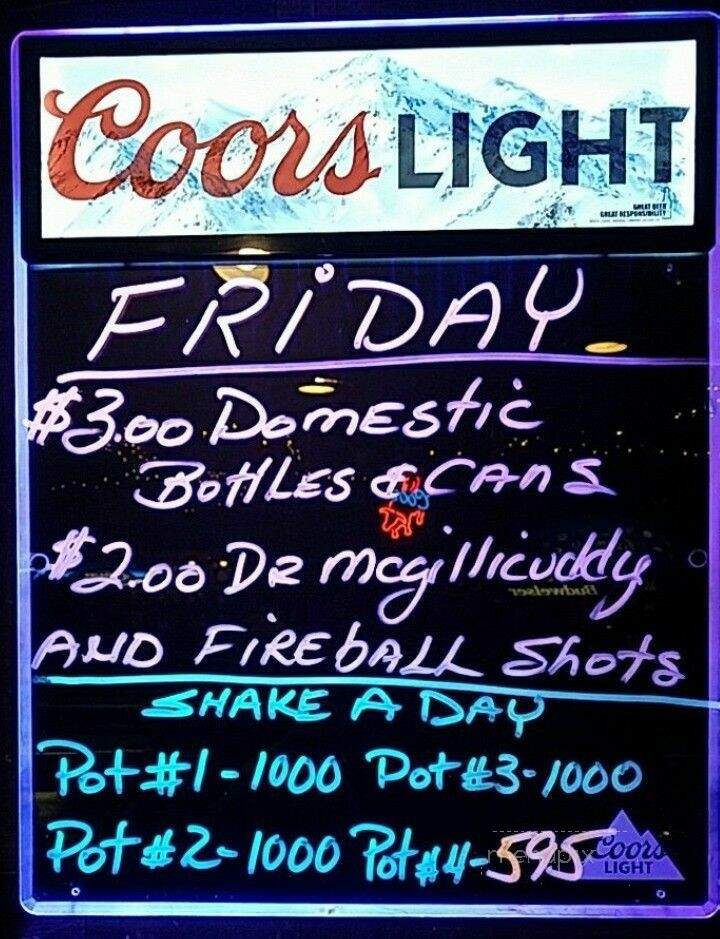 Coors LIGHT
GREAT BEER
GREAT RESPONSIBILITY
FRIDAY
$3.00 DOMEStic
BottLES & CANS
$2.00 DR mcgillicuddy
AND FiREbALL Shots
SHAKE A DAY
Pot #1 - 1000 Pot #3 - 1000
Pot #2 - 1000 Pot #4 - 595
Coors
LIGHT
Budweiser